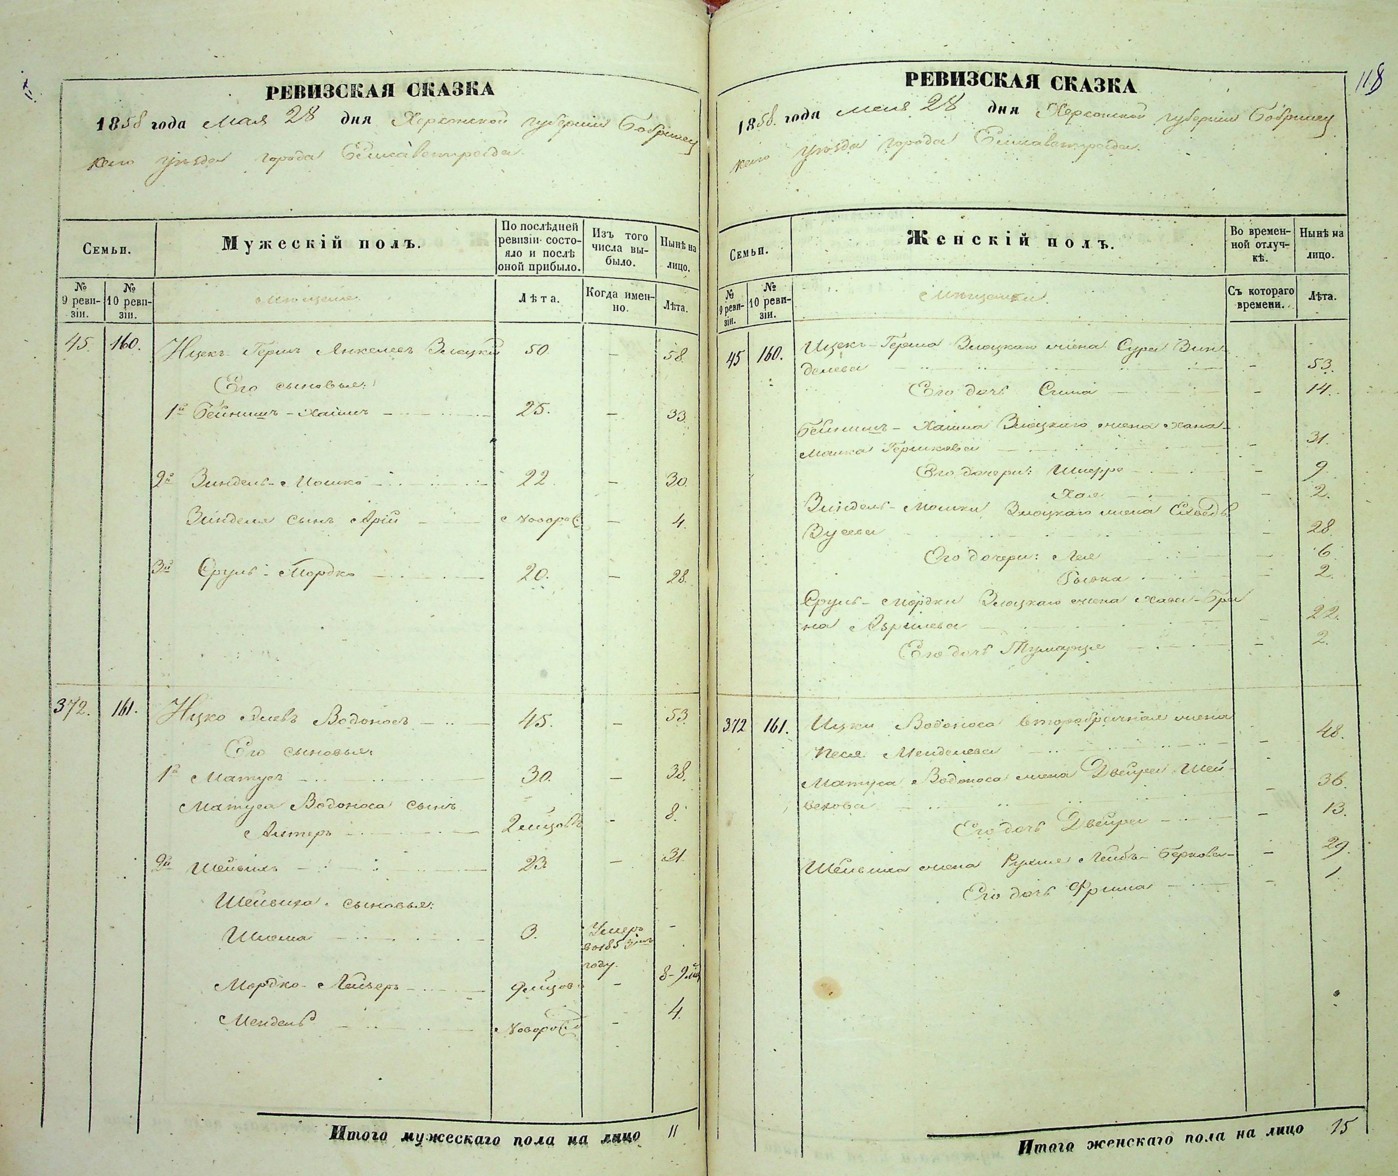 РЕВИЗСКАЯ СКАЗКА
1858 года мая 28 дня Херсонской губернии Бобринец
каго уѣзда города Елисаветграда.
Семьи.
Мужескій полъ.
По послѣдней ревизіи состояло и послѣ оной прибыло.
Изъ того числа выбыло.
Нынѣ на лицо.
№ 9 ревизіи.
№ 10 ревизіи.
мѣщане
Лѣта.
Когда именно.
Лѣта.
45. 160. Ицекъ Гершъ Янкелевъ Злоцкій 50. — 58.
Его сыновья:
1й Бейнишъ-Хаимъ 25. — 33.
2й Зиндель-Мошко 22 — 30
Зинделя сынъ Арій новорож — 4.
3й Сруль-Мордко 20. — 28.
372. 161. Ицко Водоносъ 45. — 53
Его сыновья
1й Матусъ 30. — 38.
Матуса Водоноса сынъ
Алтеръ 2 мѣсяцовъ — 8.
2й Шейвихъ 23 — 31.
сыновья:
3. Умеръ —
въ 185
году.
Мордко-Лейзеръ 9 мѣсяцов — 8-9 мѣс
Мендель новорож — 4.
Итого мужескаго пола на лицо 11
118
РЕВИЗСКАЯ СКАЗКА
1858. года мая 28 дня Херсонской губерніи Бобринец
каго уѣзда города Елисаветграда.
Семьи.
Женскій полъ.
Во временной отлучкѣ.
Нынѣ на лицо.
№ 9 ревизіи.
№ 10 ревизіи.
мѣщанки
Съ котораго времени.
Лѣта.
45 160. Ицекъ-Герша Злоцкаго жена Сура Зин-
делева — 53.
Его дочь Сима — 14.
Бейнишъ-Хаима Злоцкаго жена Хана-
Малка Гершкова — 31.
Его дочери: — 9.
Хая — 2.
Зиндель-Мошки Злоцкаго жена
— 28.
Его дочери: Лея — 6
— 2.
Сруль-Мордки Злоцкаго жена Хава-Брай
на — 22.
Его дочь — 2.
372 161. Ицки Водоноса второбрачная жена
Песя Менделева — 48.
Матуса Водоноса жена Двейра Шей-
вехова — 36.
Его дочь Двейра — 13.
Шейвиха жена Рухля Лейбъ-Беркова — 29.
Его дочь Фрима — 1
Итого женскаго пола на лицо 15